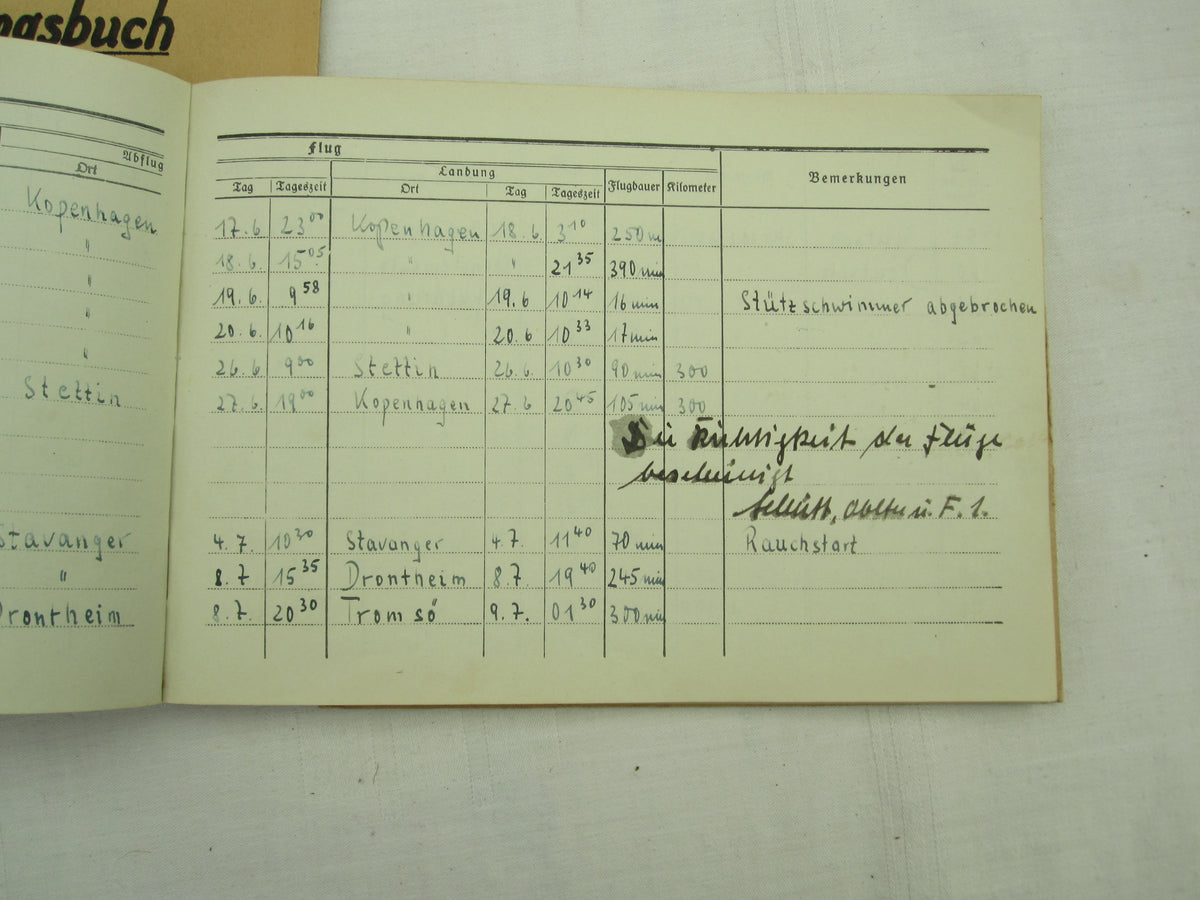 ngsbuch
Abflug
Ort
Kopenhagen
"
"
"
"
Stettin
Stavanger
"
Drontheim
Flug
Landung
Tag Tageszeit Ort Tag Tageszeit Flugdauer Kilometer Bemerkungen
17.6 23 00 Kopenhagen 18.6. 3 10 250 m
18.6. 15 05 " " 21 35 390 min
19.6. 9 58 " 19.6 10 14 16 min Stützschwimmer abgebrochen
20.6. 10 16 " 20.6 10 33 17 min
26.6 9 00 Stettin 26.6. 10 30 90 min 300
27.6. 19 00 Kopenhagen 27.6 20 45 105 min 300
Die Richtigkeit der Flüge
bescheinigt
u. F. l.
4.7. 10 30 Stavanger 4.7. 11 40 70 min Rauchstart
8.7 15 35 Drontheim 8.7. 19 40 245 min
8.7. 20 30 Tromsö 9.7. 01 30 300 min